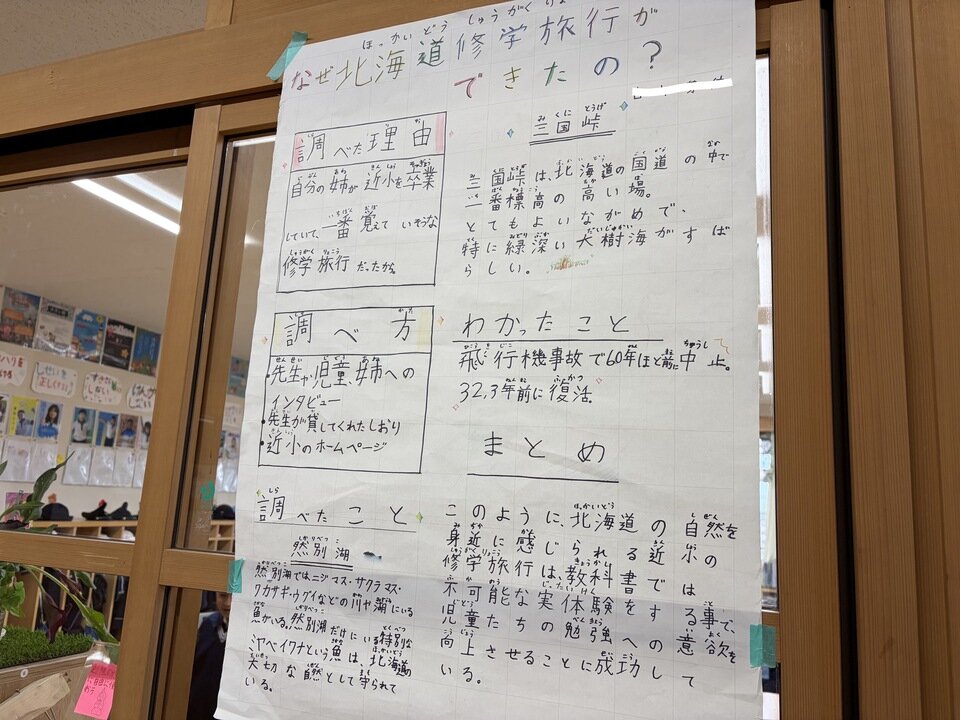 なぜ北海道修学旅行が
できたの?
調べた理由
自分の姉が近小を卒業
していて、一番覚えていそうな
修学旅行だったから。
調べ方
・先生や児童、姉への
インタビュー
・先生が貸してくれたしおり
・近小のホームページ
調べたこと
然別湖
然別湖ではニジマス・サクラマス・
ワカサギ・ウグイなどの川や湖にいる
魚がいる。然別湖だけにいる特別な
ミヤベイワナという魚は、北海道の
大切な自然として守られて
いる。
三国峠
三国峠は、北海道の国道の中で
一番標高の高い場。
とてもよいながめで、
特に緑深い大樹海がすば
らしい。
わかったこと
飛行機事故で60年ほど前に中止。
32,3年前に復活
まとめ
このように、北海道の自然を
身近に感じられる近小の
修学旅行は、教科書では
不可能な実体験をする事で、
児童たちの勉強への意欲を
向上させることに成功して
いる。